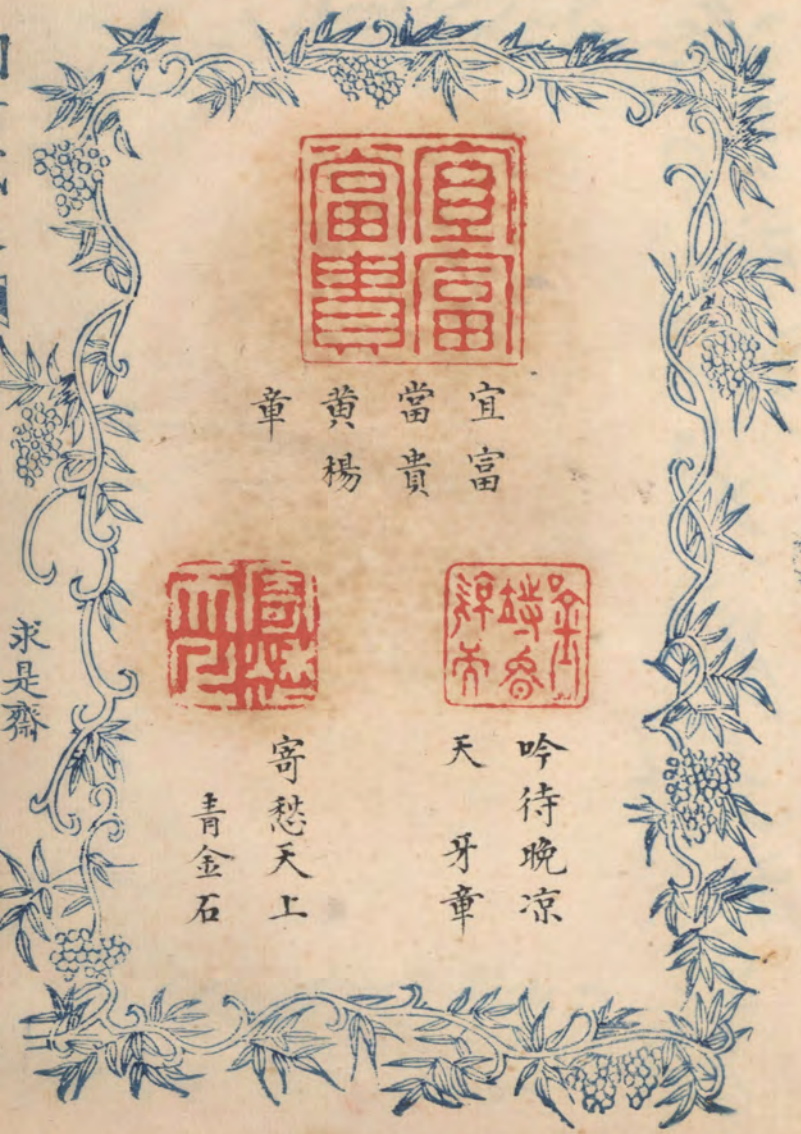 宜富
當貴
宜富
當貴
黄楊
章
吟待晚凉
天
吟待晚凉
天 牙章
寄愁
天上
寄愁天上
青金石
求是齋